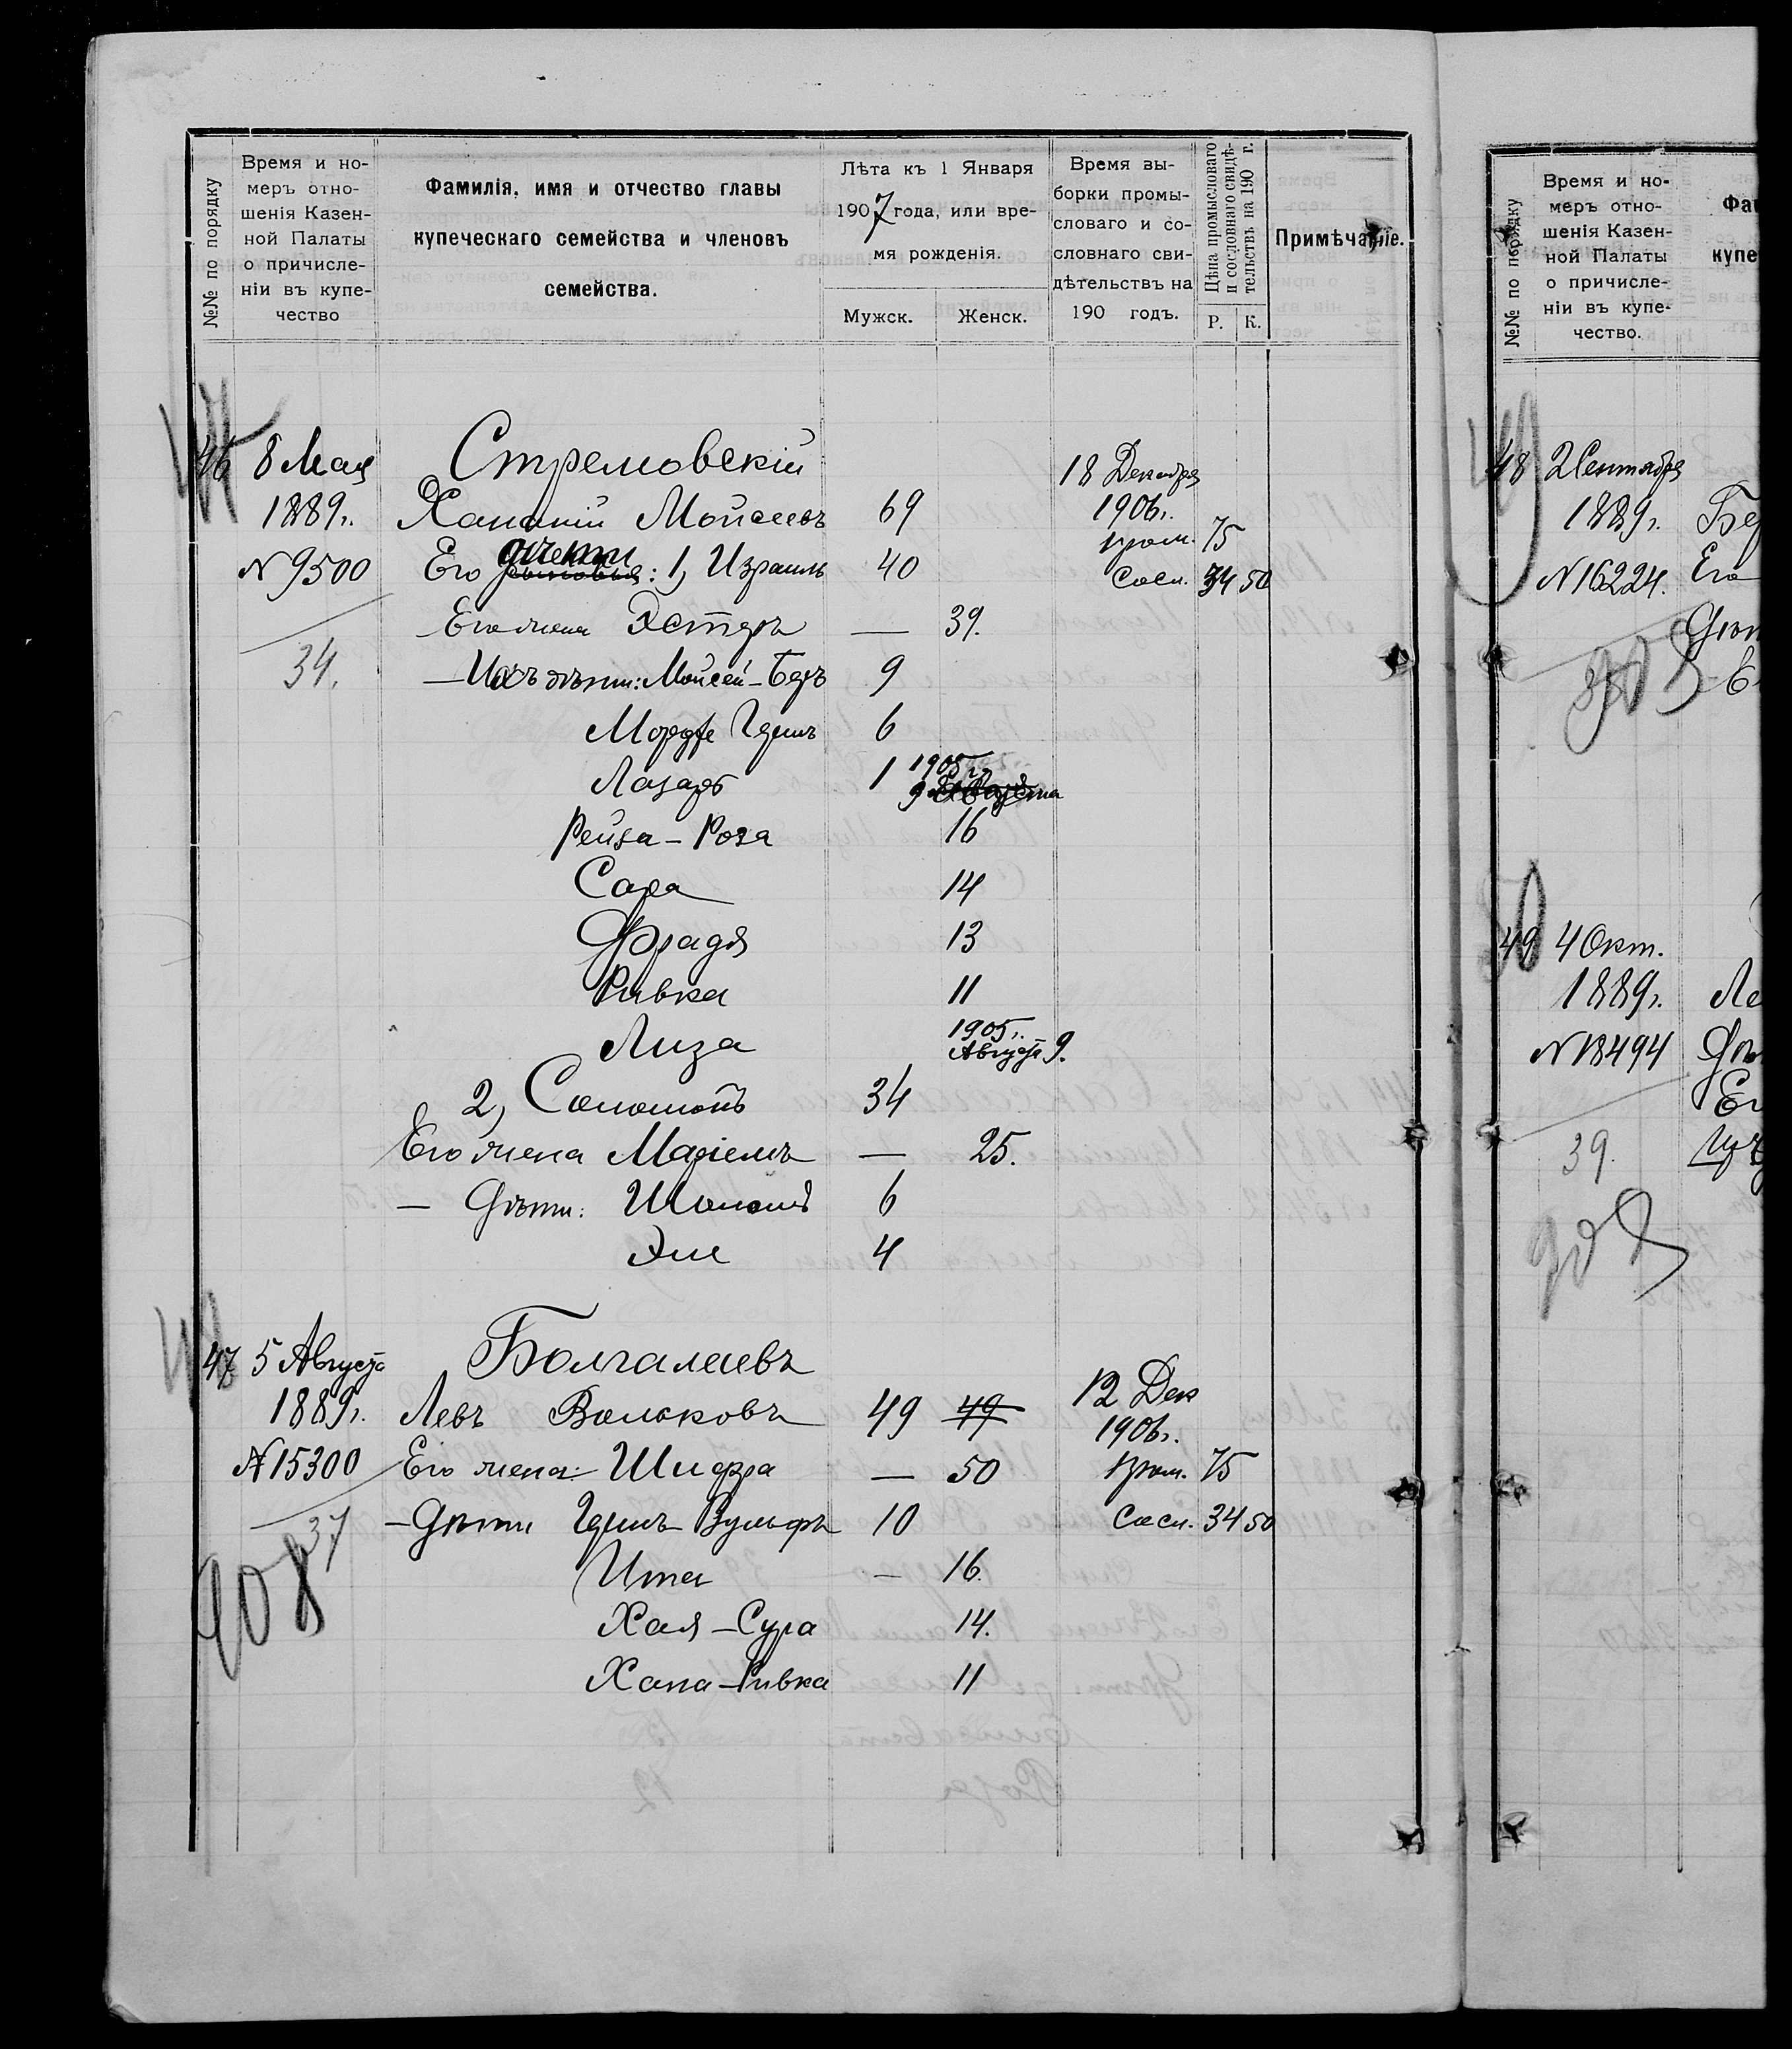 №№ по порядку
Время и но-
меръ отно-
шенія Казен-
ной Палаты
о причисле-
ніи въ купе-
чество
Фамилія, имя и отчество главы
купеческаго семейства и членовъ
семейства.
Лѣта къ 1 Января
1907 года, или вре-
мя рожденія.
Мужск. Женск.
Время вы-
борки промы-
словаго и со-
словнаго сви-
дѣтельствъ на
190 годъ.
Цѣна промысловаго
и сословнаго свидѣ-
тельствъ на 190 г.
Р. К.
Примѣчаніе.
46 8 Мая Стремовскій 18 Декабря
1889г. Хананій Мойсеевъ 69 1906г.
пром. 75
№ 9500 Его дѣти: 1, Израиль 40 сосл. 34 50
Его жена Эстеръ — 39.
34. — Ихъ дѣти: Мойсей-Беръ 9
Мордхе Гдиль 6
Лазарь 1 1905 г.
9 Августа
Рейза-Роза 16
Сара 14
Фрадя 13
Ривка 11
Лиза 1905г.
Августа 9.
2, Соломонъ 34
Его жена Маріемъ — 25.
— Дѣти: Шоломъ 6
Эле 4
47 5 Августа Болгалеевъ 12 Дек
1889г. Левъ Вольковъ 49 49 1906г.
№ 15300 Его жена: Шифра — 50 пром. 75
37 — Дѣти Гдиль-Вульфъ 10 сосл. 34 50
908 Ита — 16.
Хая-Сура 14.
Хана-Ривка 11
№№ по порядку
Время и но-
меръ отно-
шенія Казен-
ной Палаты
о причисле-
ніи въ купе-
чество.
Фам
купе
48 2 Сентября
1889г. Бер
№ 16224. Его
49 4 Окт.
1889г. Ле
№ 18494
39.
908